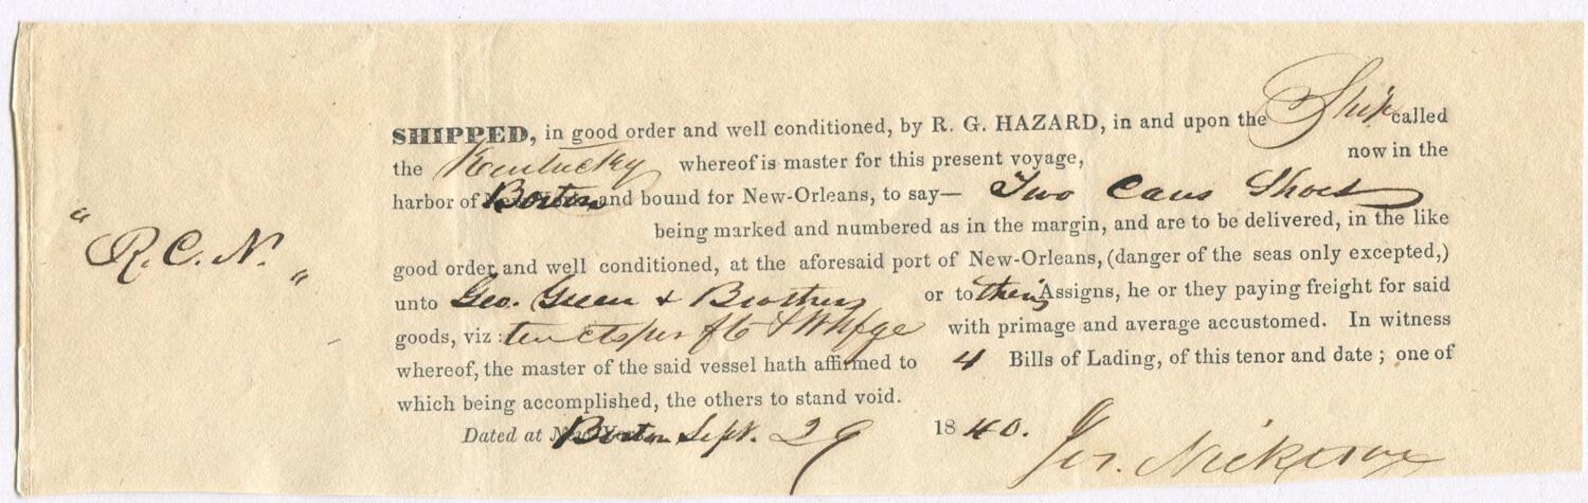 SHIPPED, in good order and well conditioned, by R. G. HAZARD, in and upon the Ship called
the Kentucky whereof is master for this present voyage, now in the
harbor of Boston and bound for New-Orleans, to say— Two Cases Shoes
being marked and numbered as in the margin, and are to be delivered, in the like
"R. C. N."
good order and well conditioned, at the aforesaid port of New-Orleans, (danger of the seas only excepted,)
unto Geo. Green & Brothers or to their Assigns, he or they paying freight for said
goods, viz: ten cts per ft & Whfge with primage and average accustomed. In witness
whereof, the master of the said vessel hath affirmed to 4 Bills of Lading, of this tenor and date; one of
which being accomplished, the others to stand void.
Dated at Boston Sept. 29 1840. Jos. Nickerson